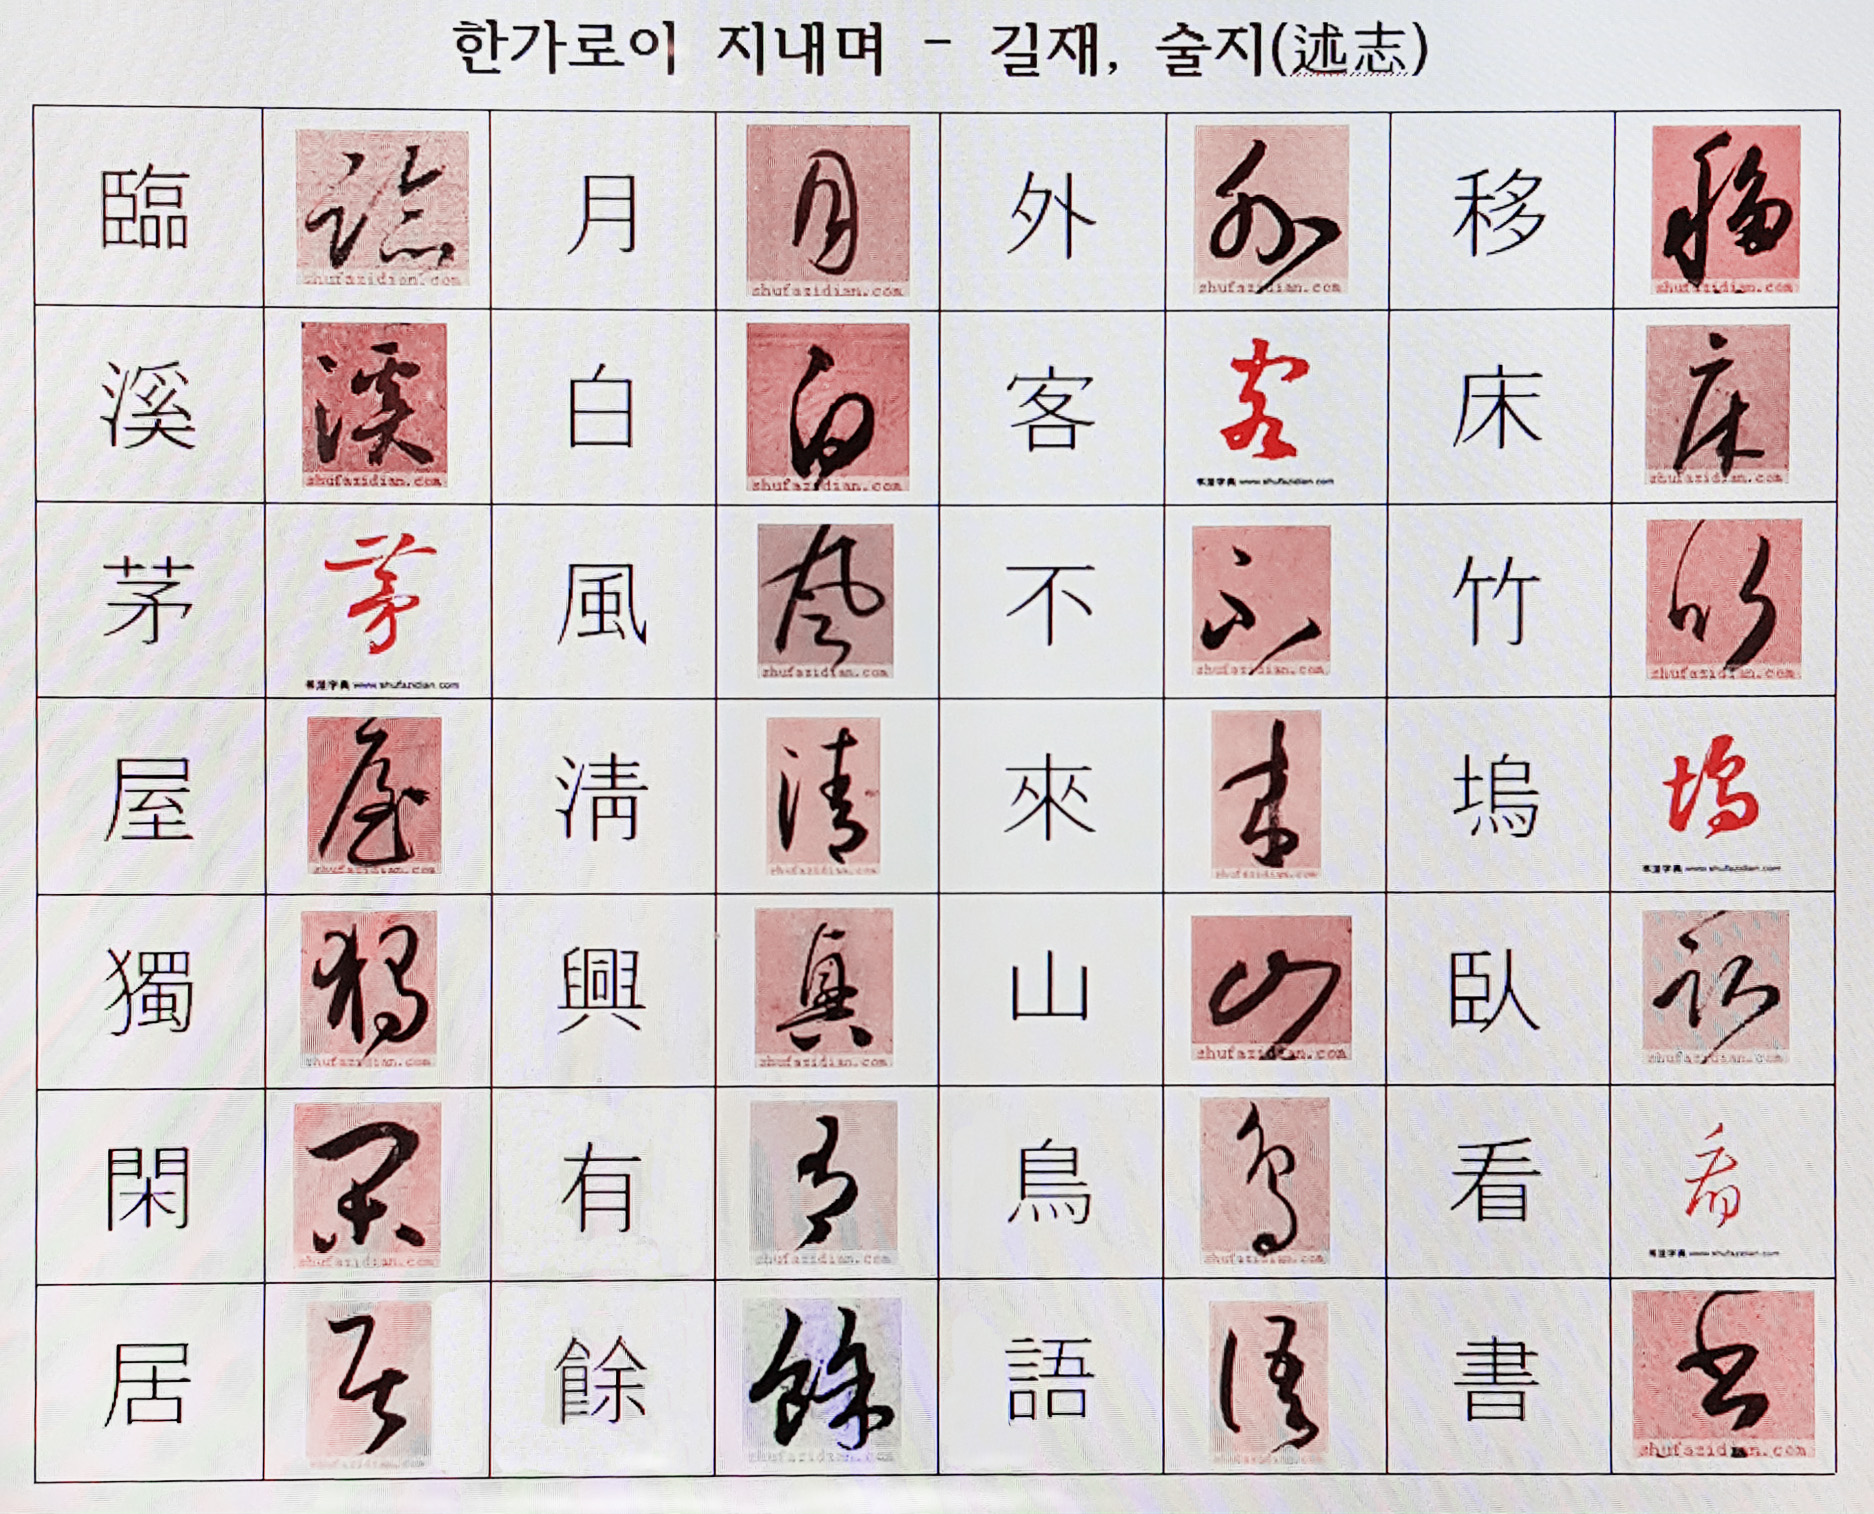 한가로이 지내며 - 길재, 술지(述志)
臨 臨 月 月 外 外 移 移
shufazidian.com shufazidian.com shufazidian.com shufazidian.com
溪 溪 白 白 客 客 床 床
shufazidian.com shufazidian.com 书法字典 www.shufazidian.com shufazidian.com
茅 茅 風 風 不 不 竹 竹
书法字典 www.shufazidian.com shufazidian.com shufazidian.com shufazidian.com
屋 屋 淸 清 來 来 塢 塢
shufazidian.com shufazidian.com shufazidian.com 书法字典 www.shufazidian.com
獨 獨 興 興 山 山 臥 臥
shufazidian.com shufazidian.com shufazidian.com shufazidian.com
閑 閑 有 有 鳥 鳥 看 看
shufazidian.com shufazidian.com shufazidian.com 书法字典 www.shufazidian.com
居 居 餘 餘 語 語 書 書
shufazidian.com shufazidian.com shufazidian.com shufazidian.com